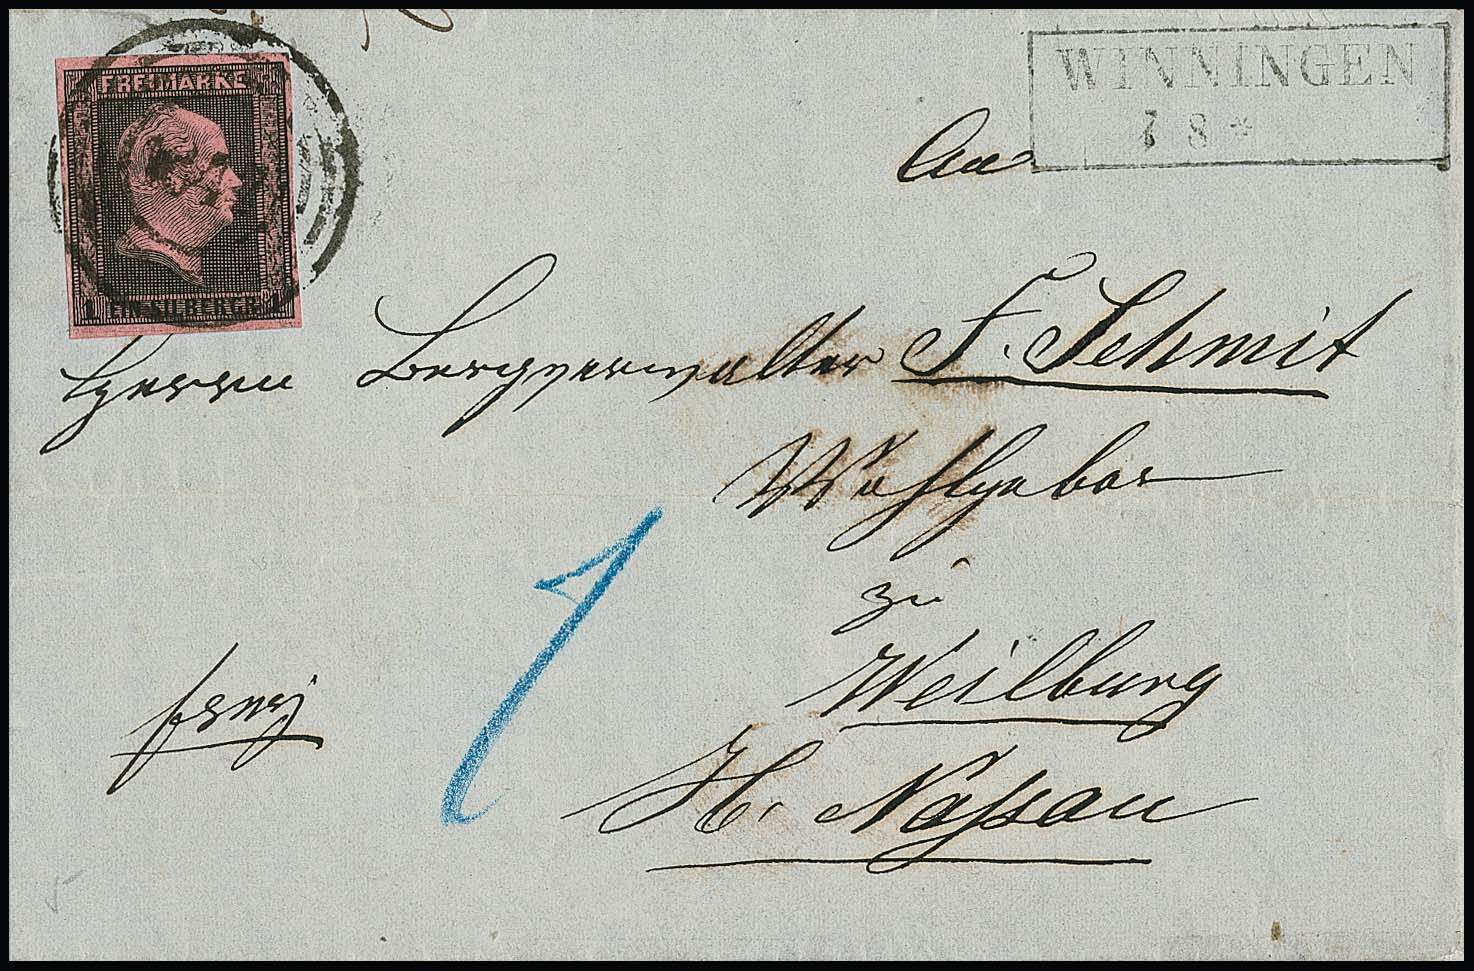 FREIMARKE
1 EIN SILBERGR. 1
WINNINGEN
7 8 *
An
Herrn Bergverwalter F. Schmit
Wohlgebor
zu
Weilburg
H. Nassau
franj
1